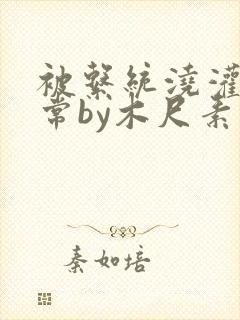 被繫統澆灌
常by木尺素
秦如培